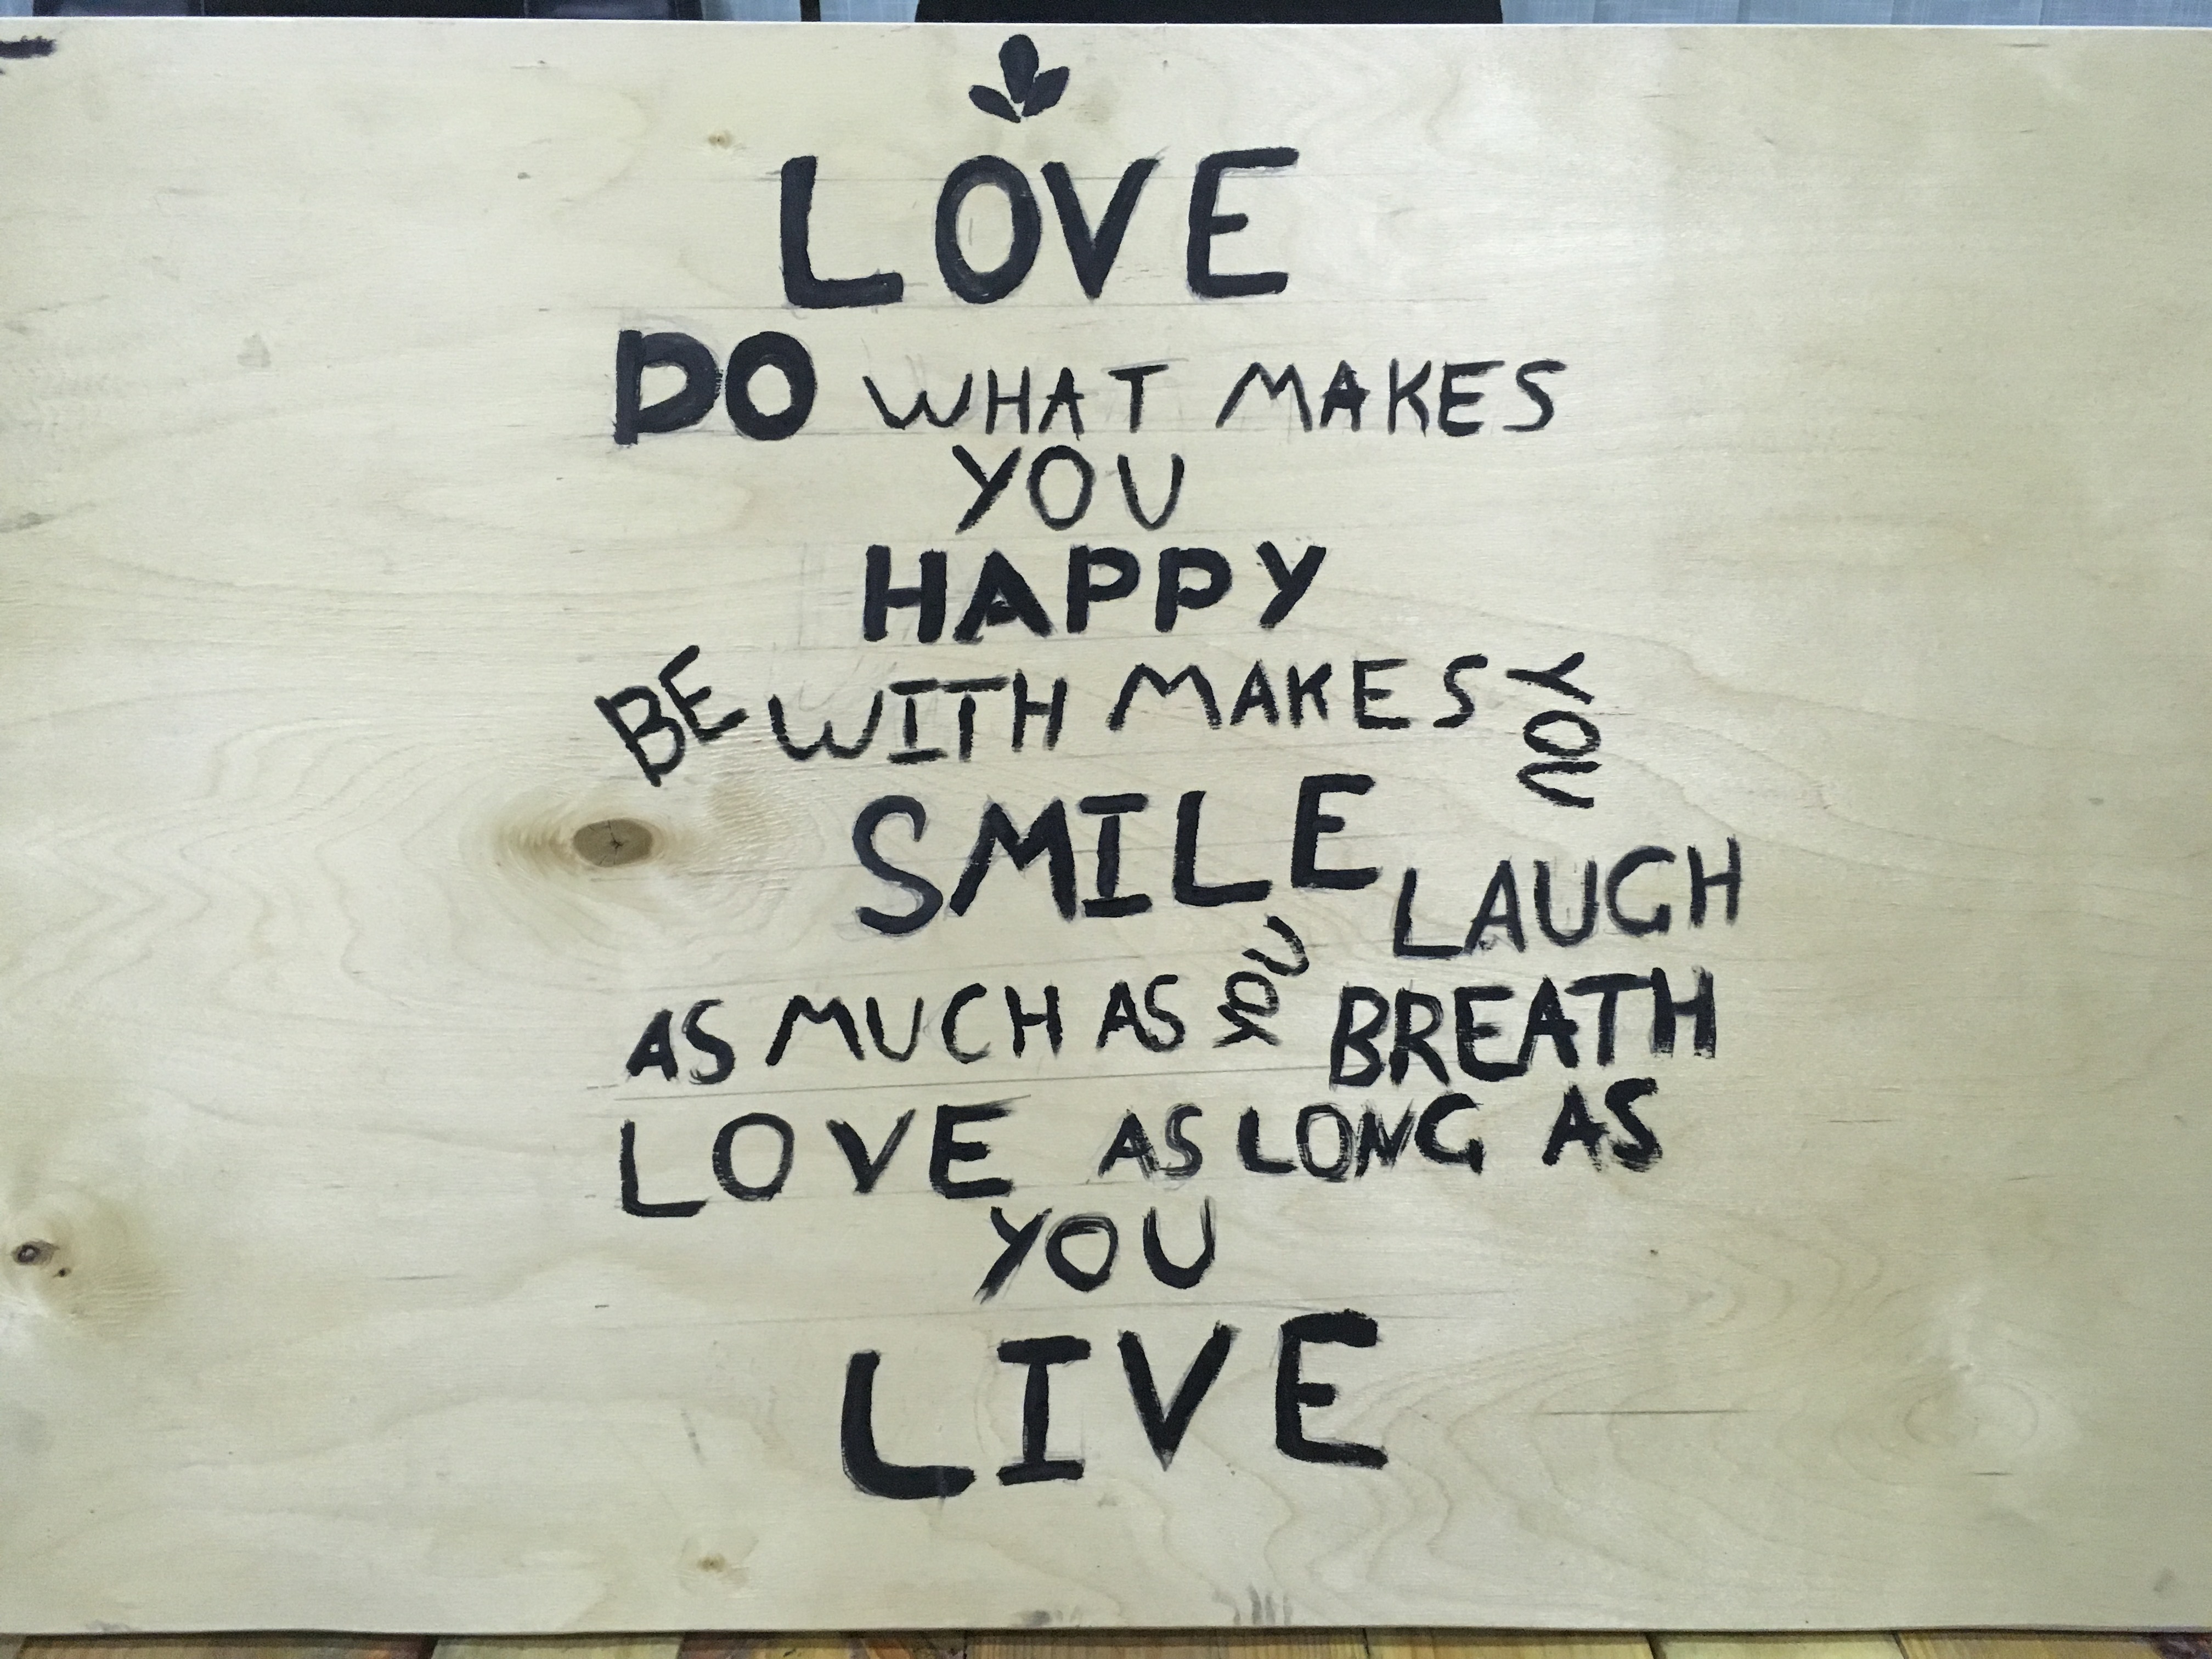 LOVE
DO WHAT MAKES
YOU
HAPPY
BE WITH MAKES YOU
SMILE
LAUGH
AS MUCH AS YOU BREATH
LOVE AS LONG AS
YOU
LIVE